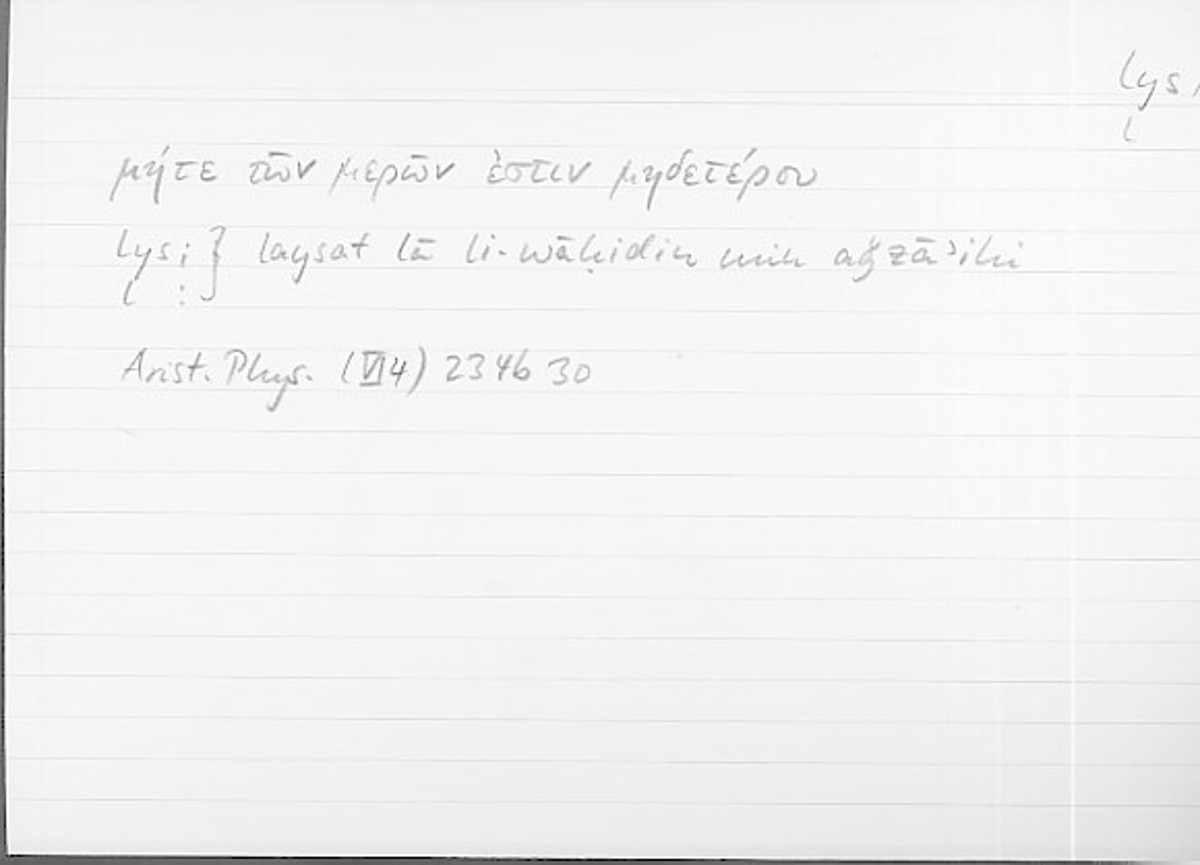 lys,
l
μήτε τῶν μερῶν ἐστιν μηδετέρου
lys; } laysat lā li-wāḥidin min aǧzāʾihi
l :
Arist. Phys. (VI 4) 234b 30